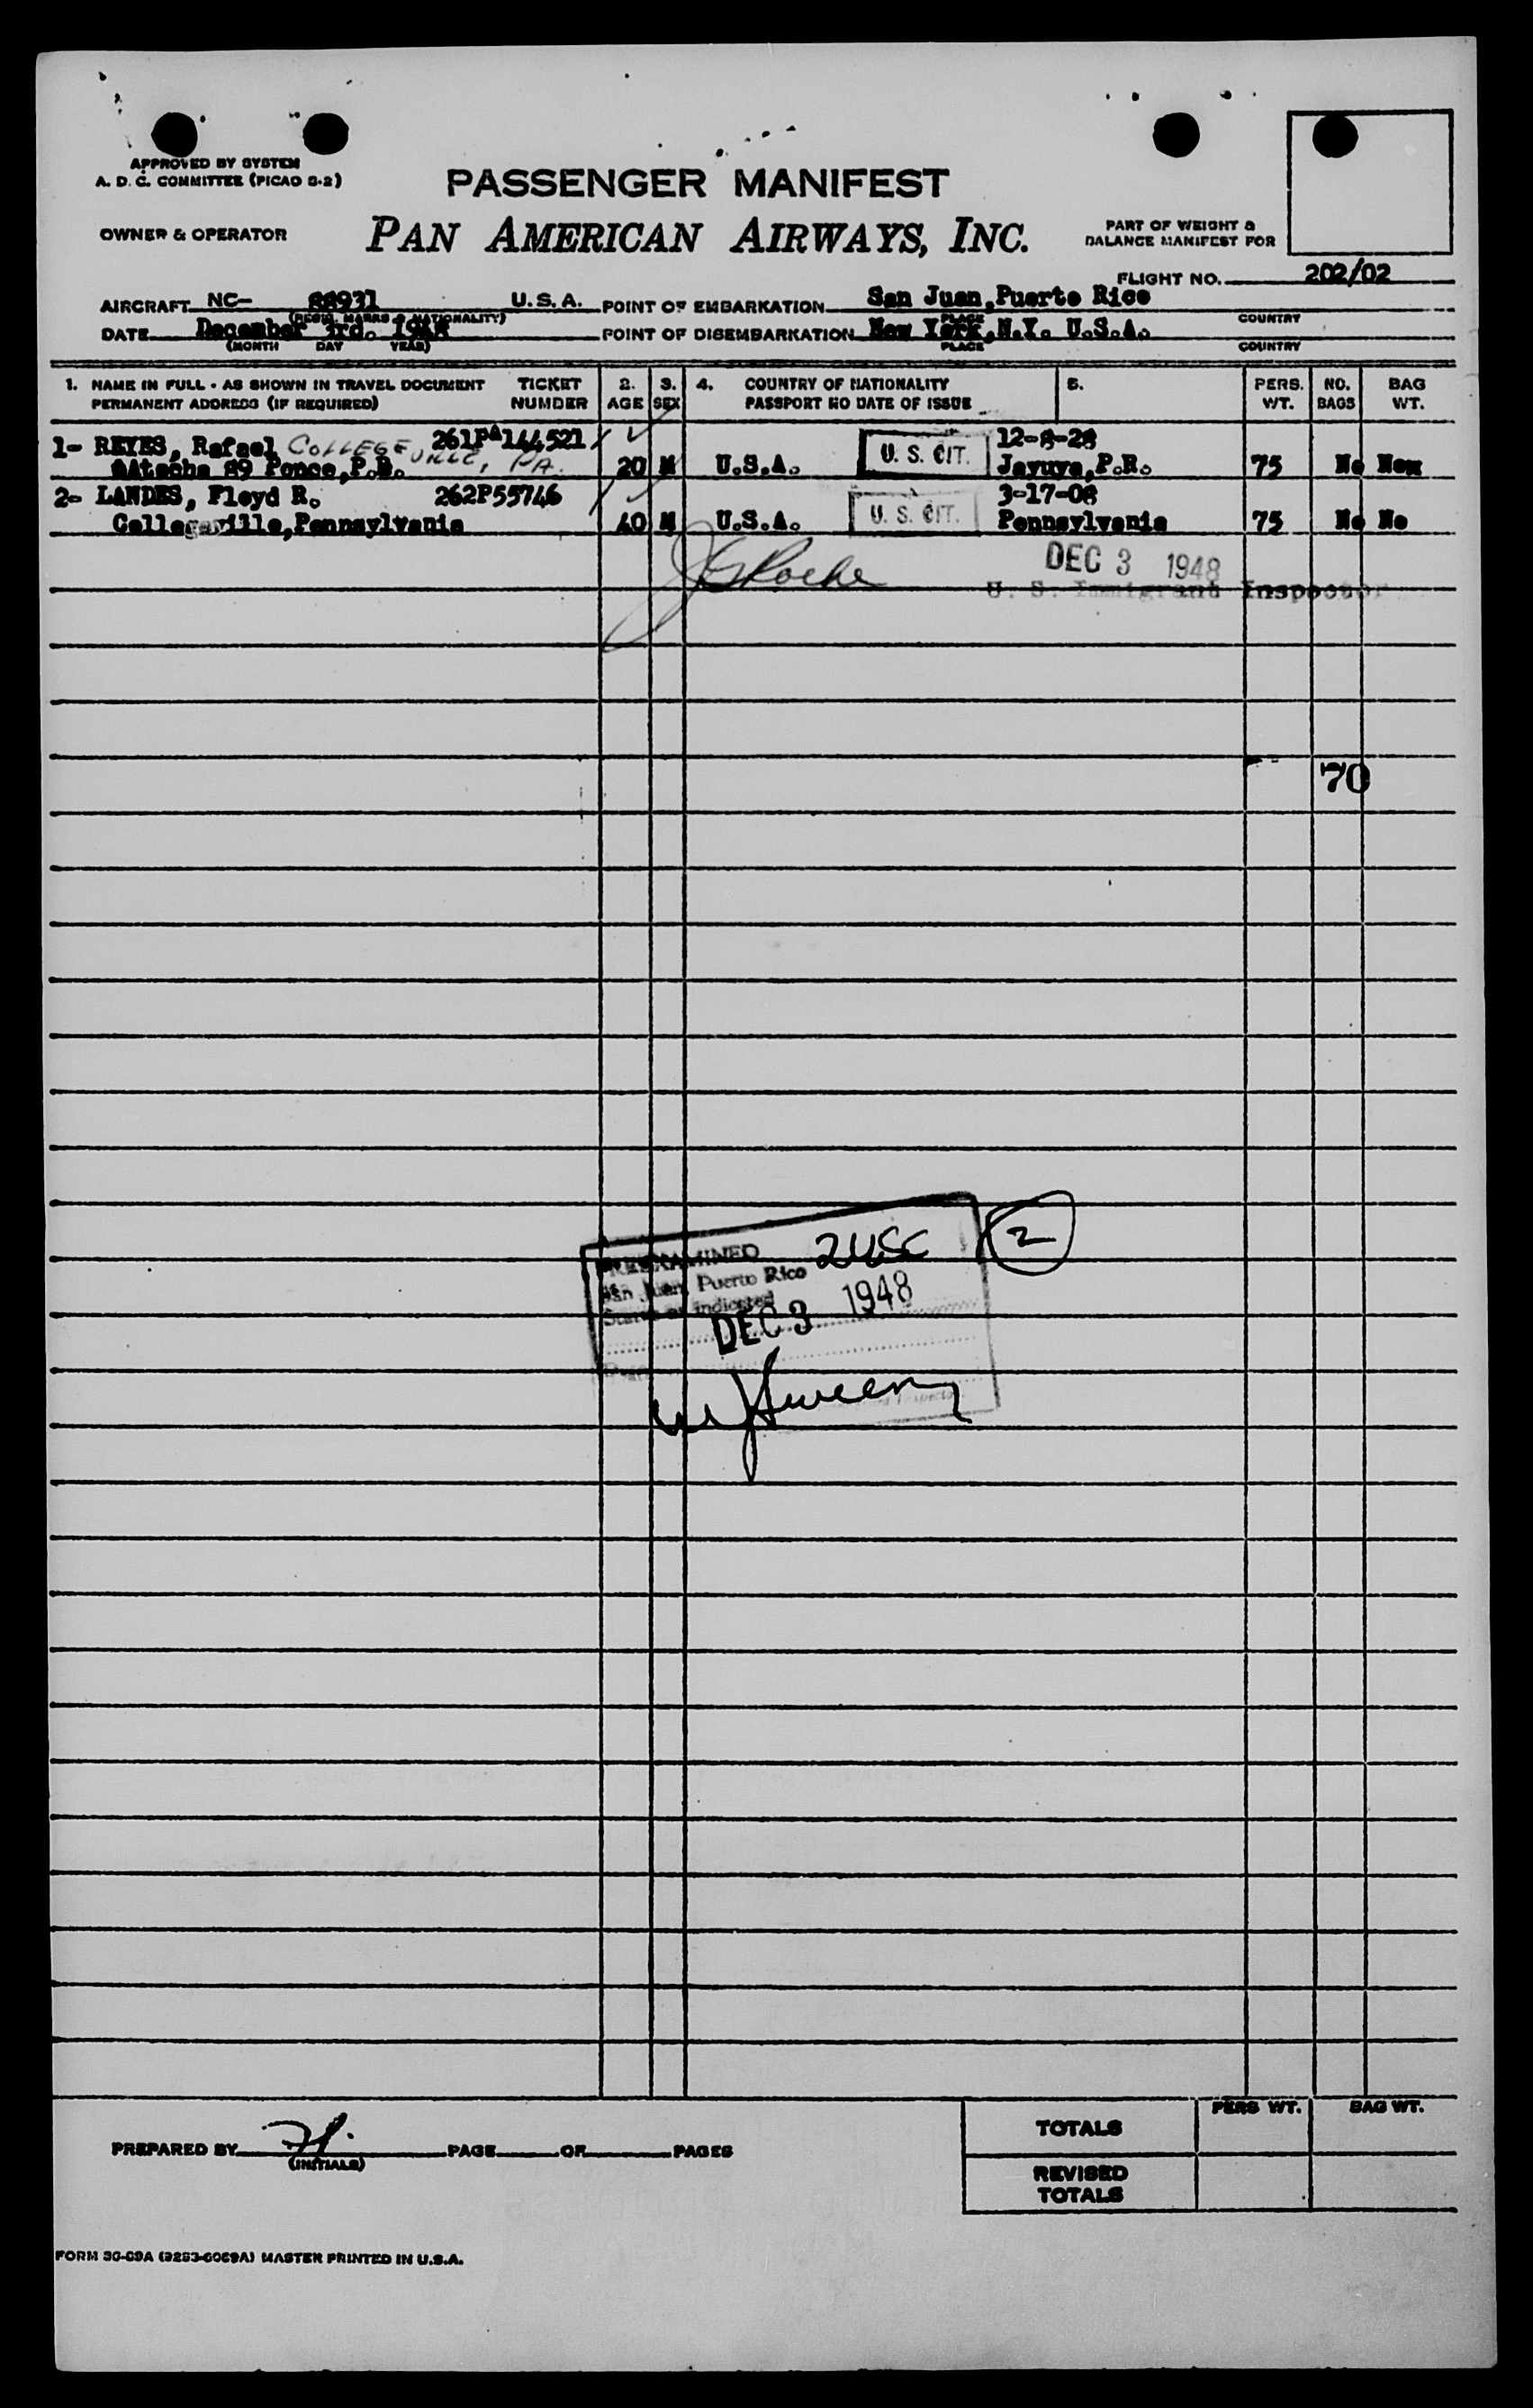 APPROVED BY SYSTEM
A. D. C. COMMITTEE (PICAO S-2)
PASSENGER MANIFEST
OWNER & OPERATOR PAN AMERICAN AIRWAYS, INC.
PART OF WEIGHT &
BALANCE MANIFEST FOR
FLIGHT NO. 202/02
AIRCRAFT NC- 88931 U.S.A. POINT OF EMBARKATION San Juan, Puerto Rico
(REGIS. MARKS & NATIONALITY) PLACE COUNTRY
DATE December 3rd. 1948 POINT OF DISEMBARKATION New York, N.Y. U.S.A.
(MONTH DAY YEAR) PLACE COUNTRY
1. NAME IN FULL - AS SHOWN IN TRAVEL DOCUMENT TICKET 2. 3. 4. COUNTRY OF NATIONALITY 5. PERS. NO. BAG
PERMANENT ADDRESS (IF REQUIRED) NUMBER AGE SEX PASSPORT NO DATE OF ISSUE WT. BAGS WT.
1- REYES, Rafael COLLEGEVILLE, PA. 261PA144521 12-8-28
Atocha 89 Ponce, P.R. 20 M U.S.A. U. S. CIT. Jayuya, P.R. 75 No
2- LANDES, Floyd R. 262P55746 3-17-08
Collegeville, Pennsylvania 40 M U.S.A. U. S. CIT. Pennsylvania 75 No No
J G Roche DEC 3 1948
U. S. Immigrant Inspector
70
PREEXAMINED 2 USC 2
San Juan, Puerto Rico
Status as indicated
DEC 3 1948
PREPARED BY PAGE OF PAGES
(INITIALS)
PERS WT. BAG WT.
TOTALS
REVISED
TOTALS
FORM 30-69A (9253-6069A) MASTER PRINTED IN U.S.A.